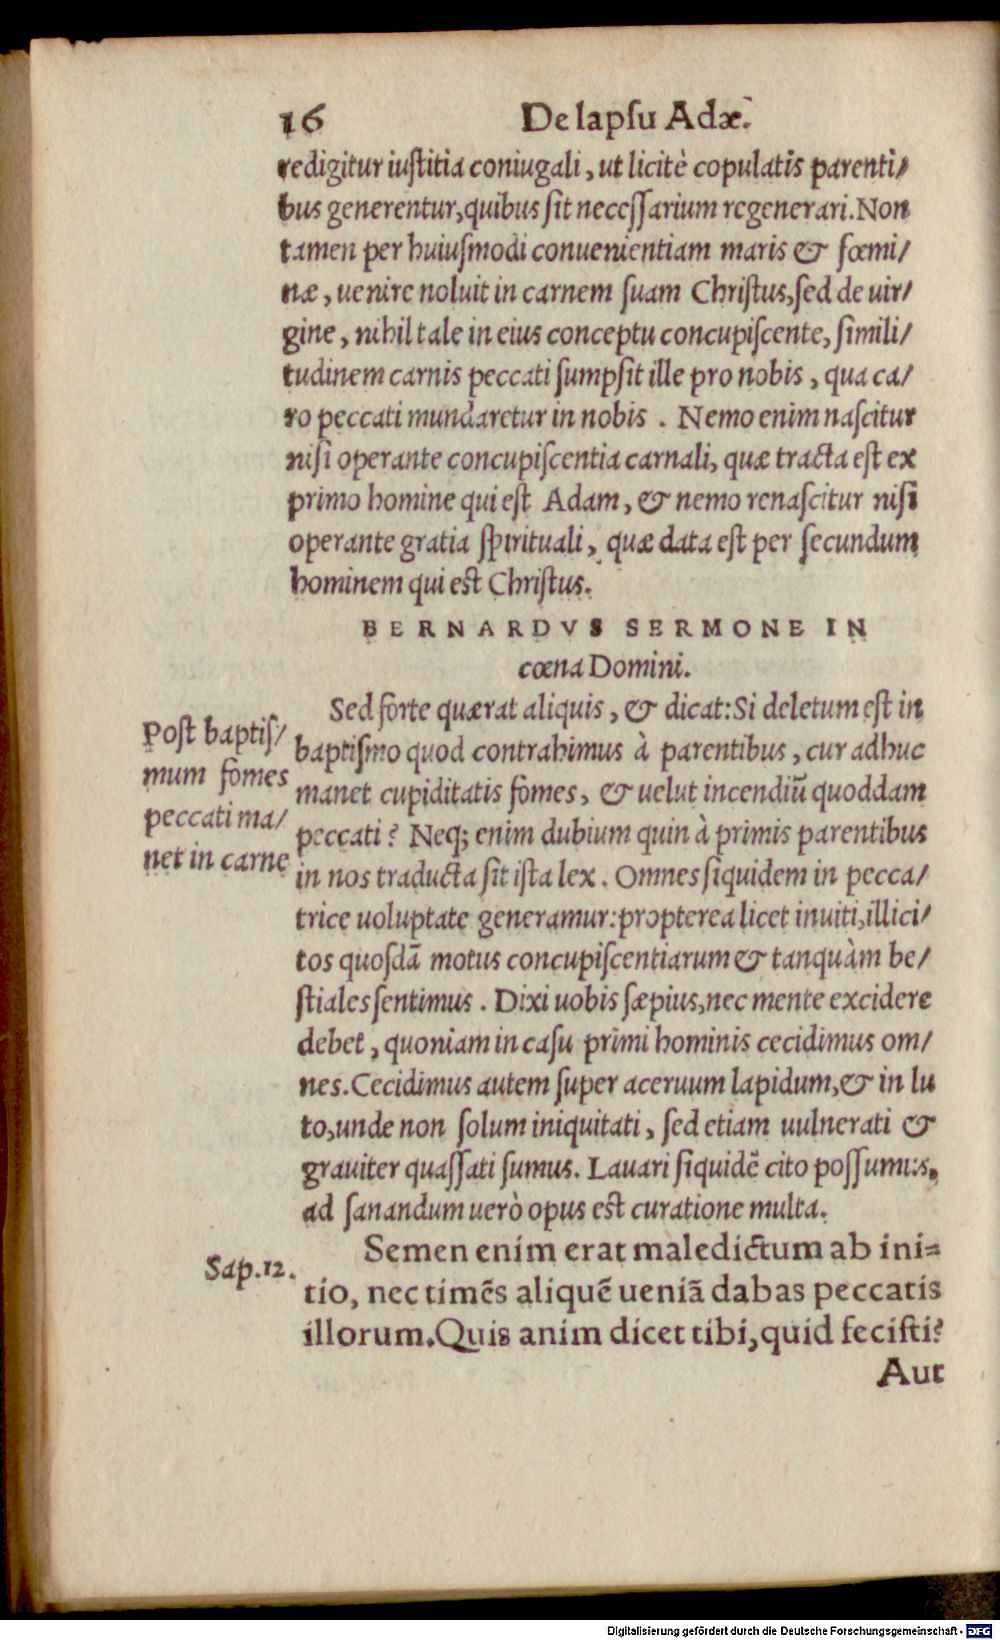 16 De lapſu Adæ.
redigitur iuſtitia coniugali, ut licitè copulatis parenti/
bus generentur, quibus ſit neceſſarium regenerari. Non
tamen per huiuſmodi conuenientiam maris & fœmi/
næ, uenire noluit in carnem ſuam Chriſtus, ſed de uir/
gine, nihil tale in eius conceptu concupiſcente, ſimili/
tudinem carnis peccati ſumpſit ille pro nobis, qua ca/
ro peccati mundaretur in nobis. Nemo enim naſcitur
niſi operante concupiſcentia carnali, quæ tracta eſt ex
primo homine qui eſt Adam, & nemo renaſcitur niſi
operante gratia ſpirituali, quæ data eſt per ſecundum
hominem qui est Chriſtus.
BERNARDVS SERMONE IN
cœna Domini.
Sed forte quærat aliquis, & dicat: Si deletum eſt in
baptiſmo quod contrahimus à parentibus, cur adhuc
manet cupiditatis fomes, & uelut incendiũ quoddam
peccati? Neq; enim dubium quin à primis parentibus
in nos traducta ſit iſta lex. Omnes ſiquidem in pecca/
trice uoluptate generamur: propterea licet inuiti, illici/
tos quoſdã motus concupiſcentiarum & tanquàm be/
ſtiales ſentimus. Dixi uobis ſæpius, nec mente excidere
debet, quoniam in caſu primi hominis cecidimus om/
nes. Cecidimus autem ſuper aceruum lapidum, & in lu
to, unde non ſolum iniquitati, ſed etiam uulnerati &
grauiter quaſſati ſumus. Lauari ſiquidẽ cito poſſumus,
ad ſanandum uerò opus est curatione multa.
Post baptiſ/
mum fomes
peccati ma/
net in carne
Semen enim erat maledictum ab ini=
tio, nec timẽs aliquẽ ueniã dabas peccatis
illorum. Quis anim dicet tibi, quid feciſti?
Sap. 12.
Aut
Digitalisierung gefördert durch die Deutsche Forschungsgemeinschaft - DFG